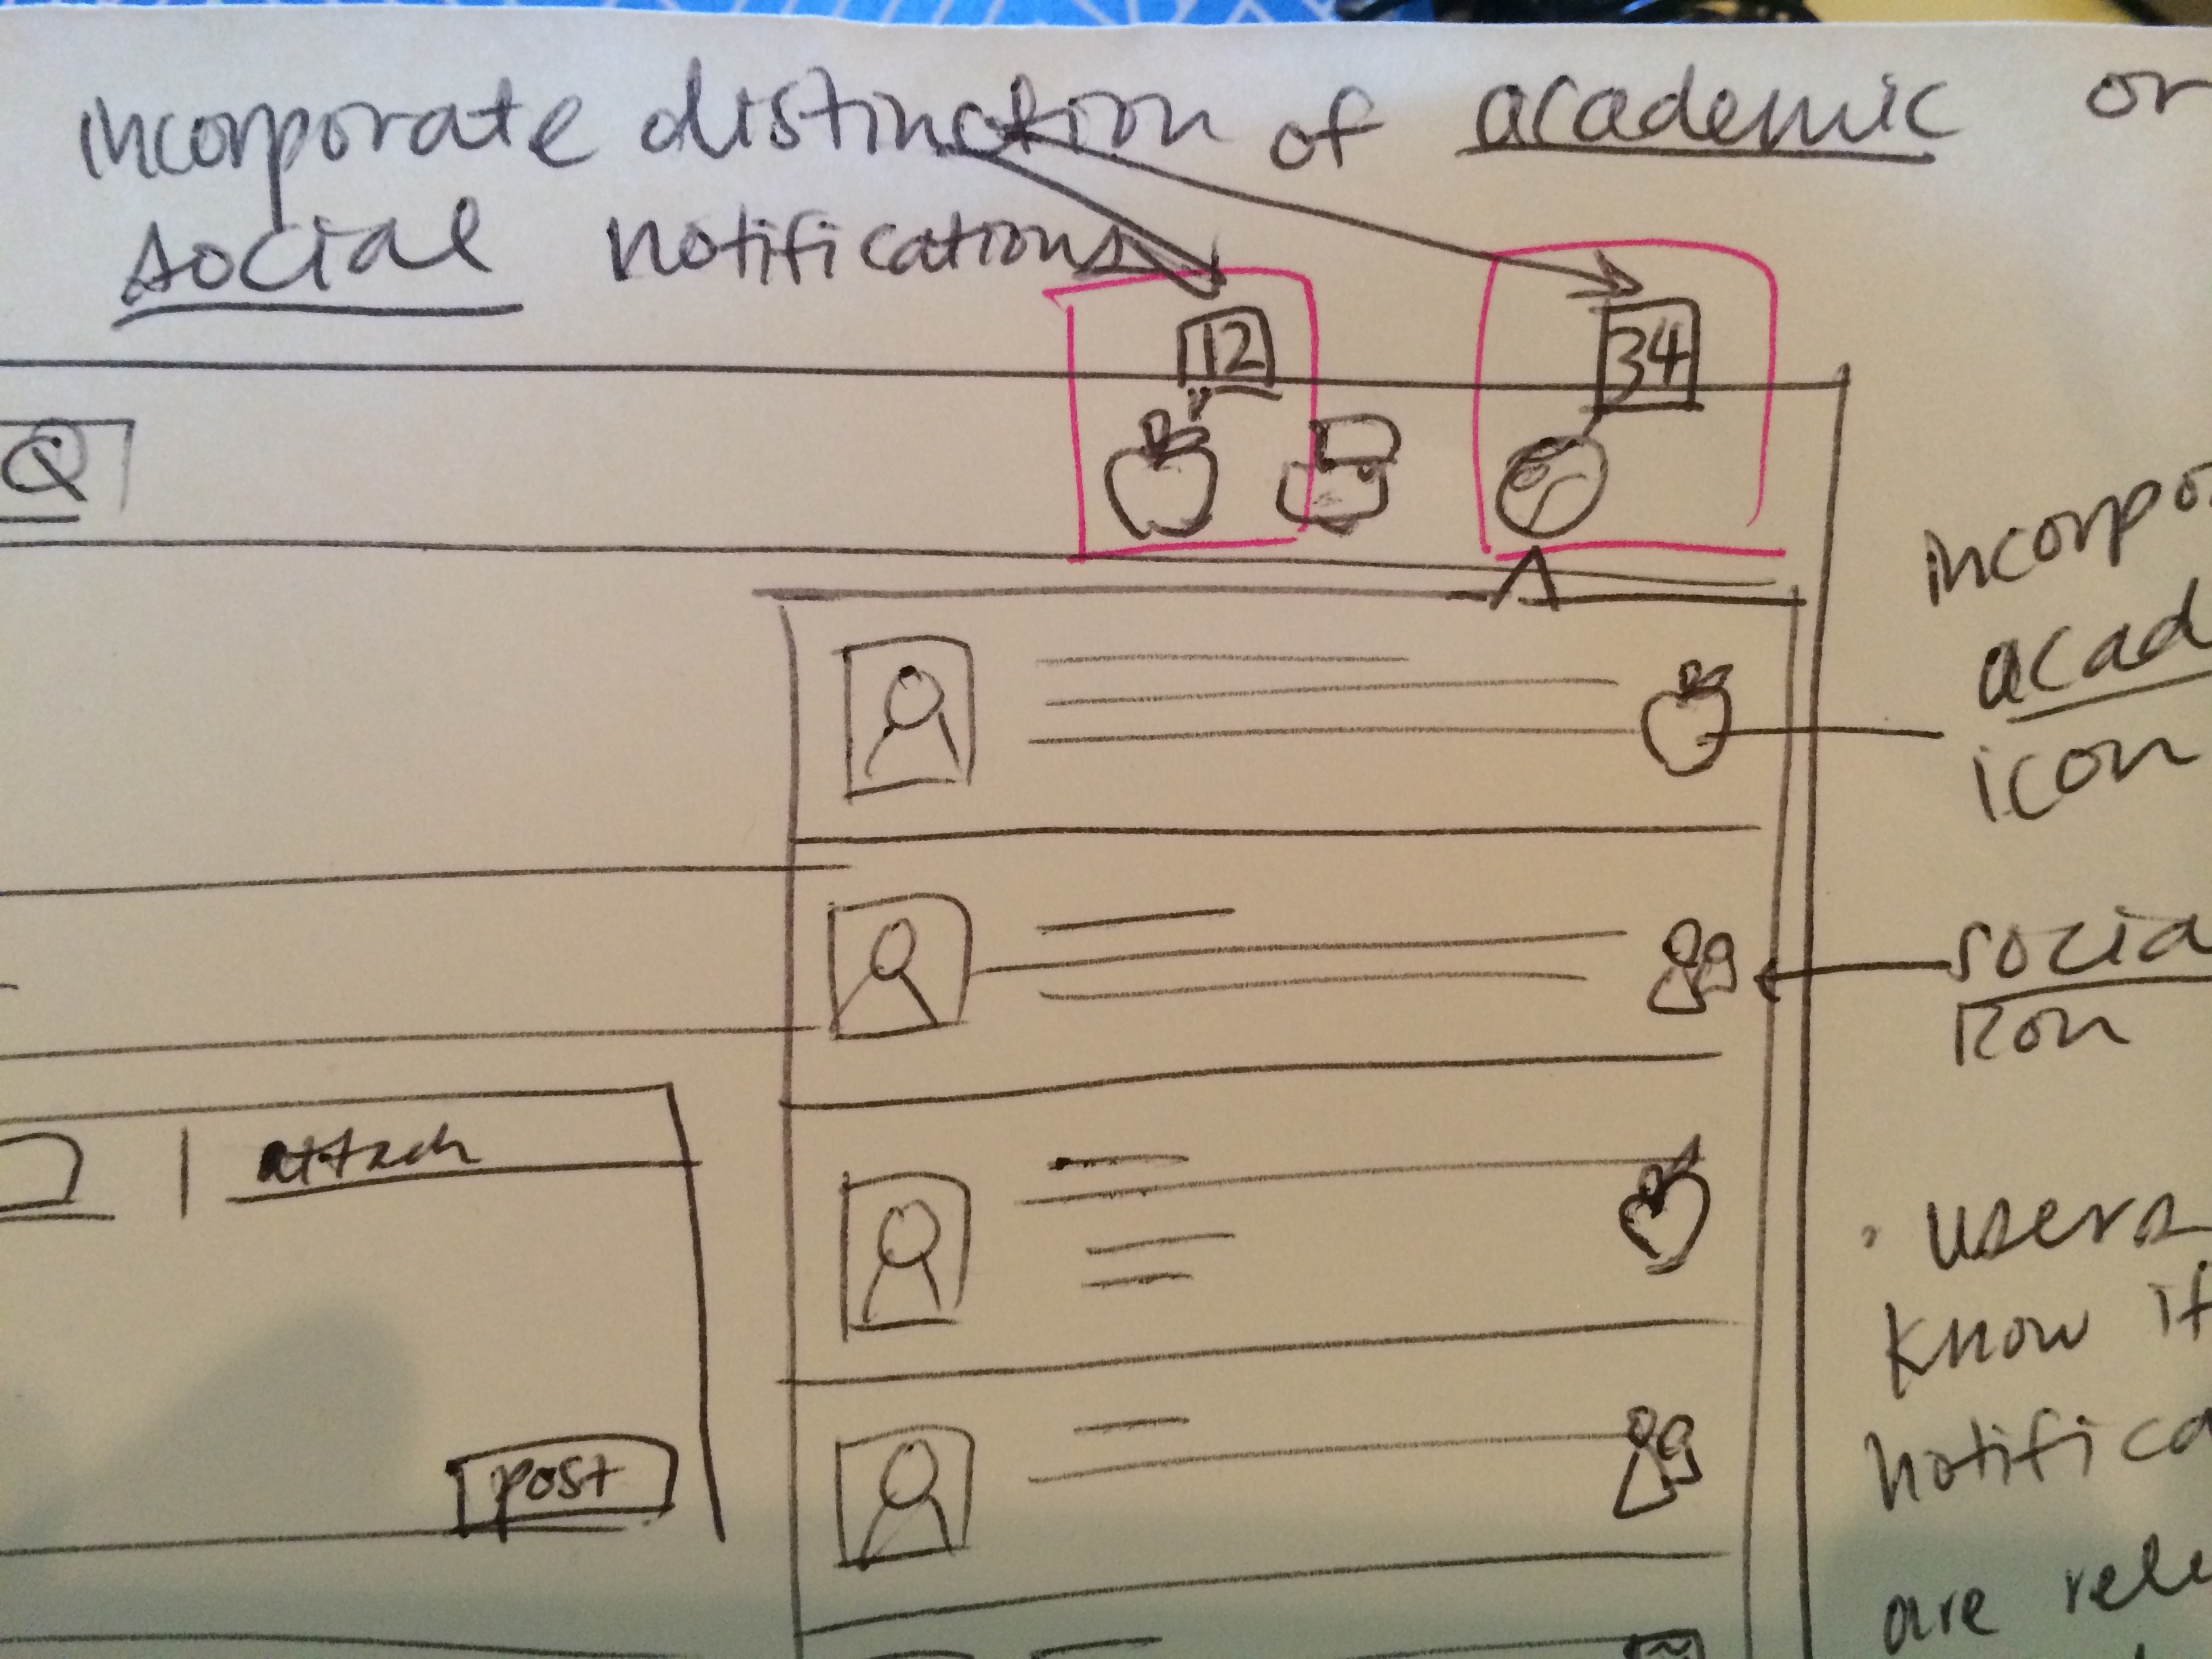 incorporate distinction of academic or
social notifications
12
34
incorpo
acad
icon
socia
icon
attach
post
• users
know if
notifica
are rele